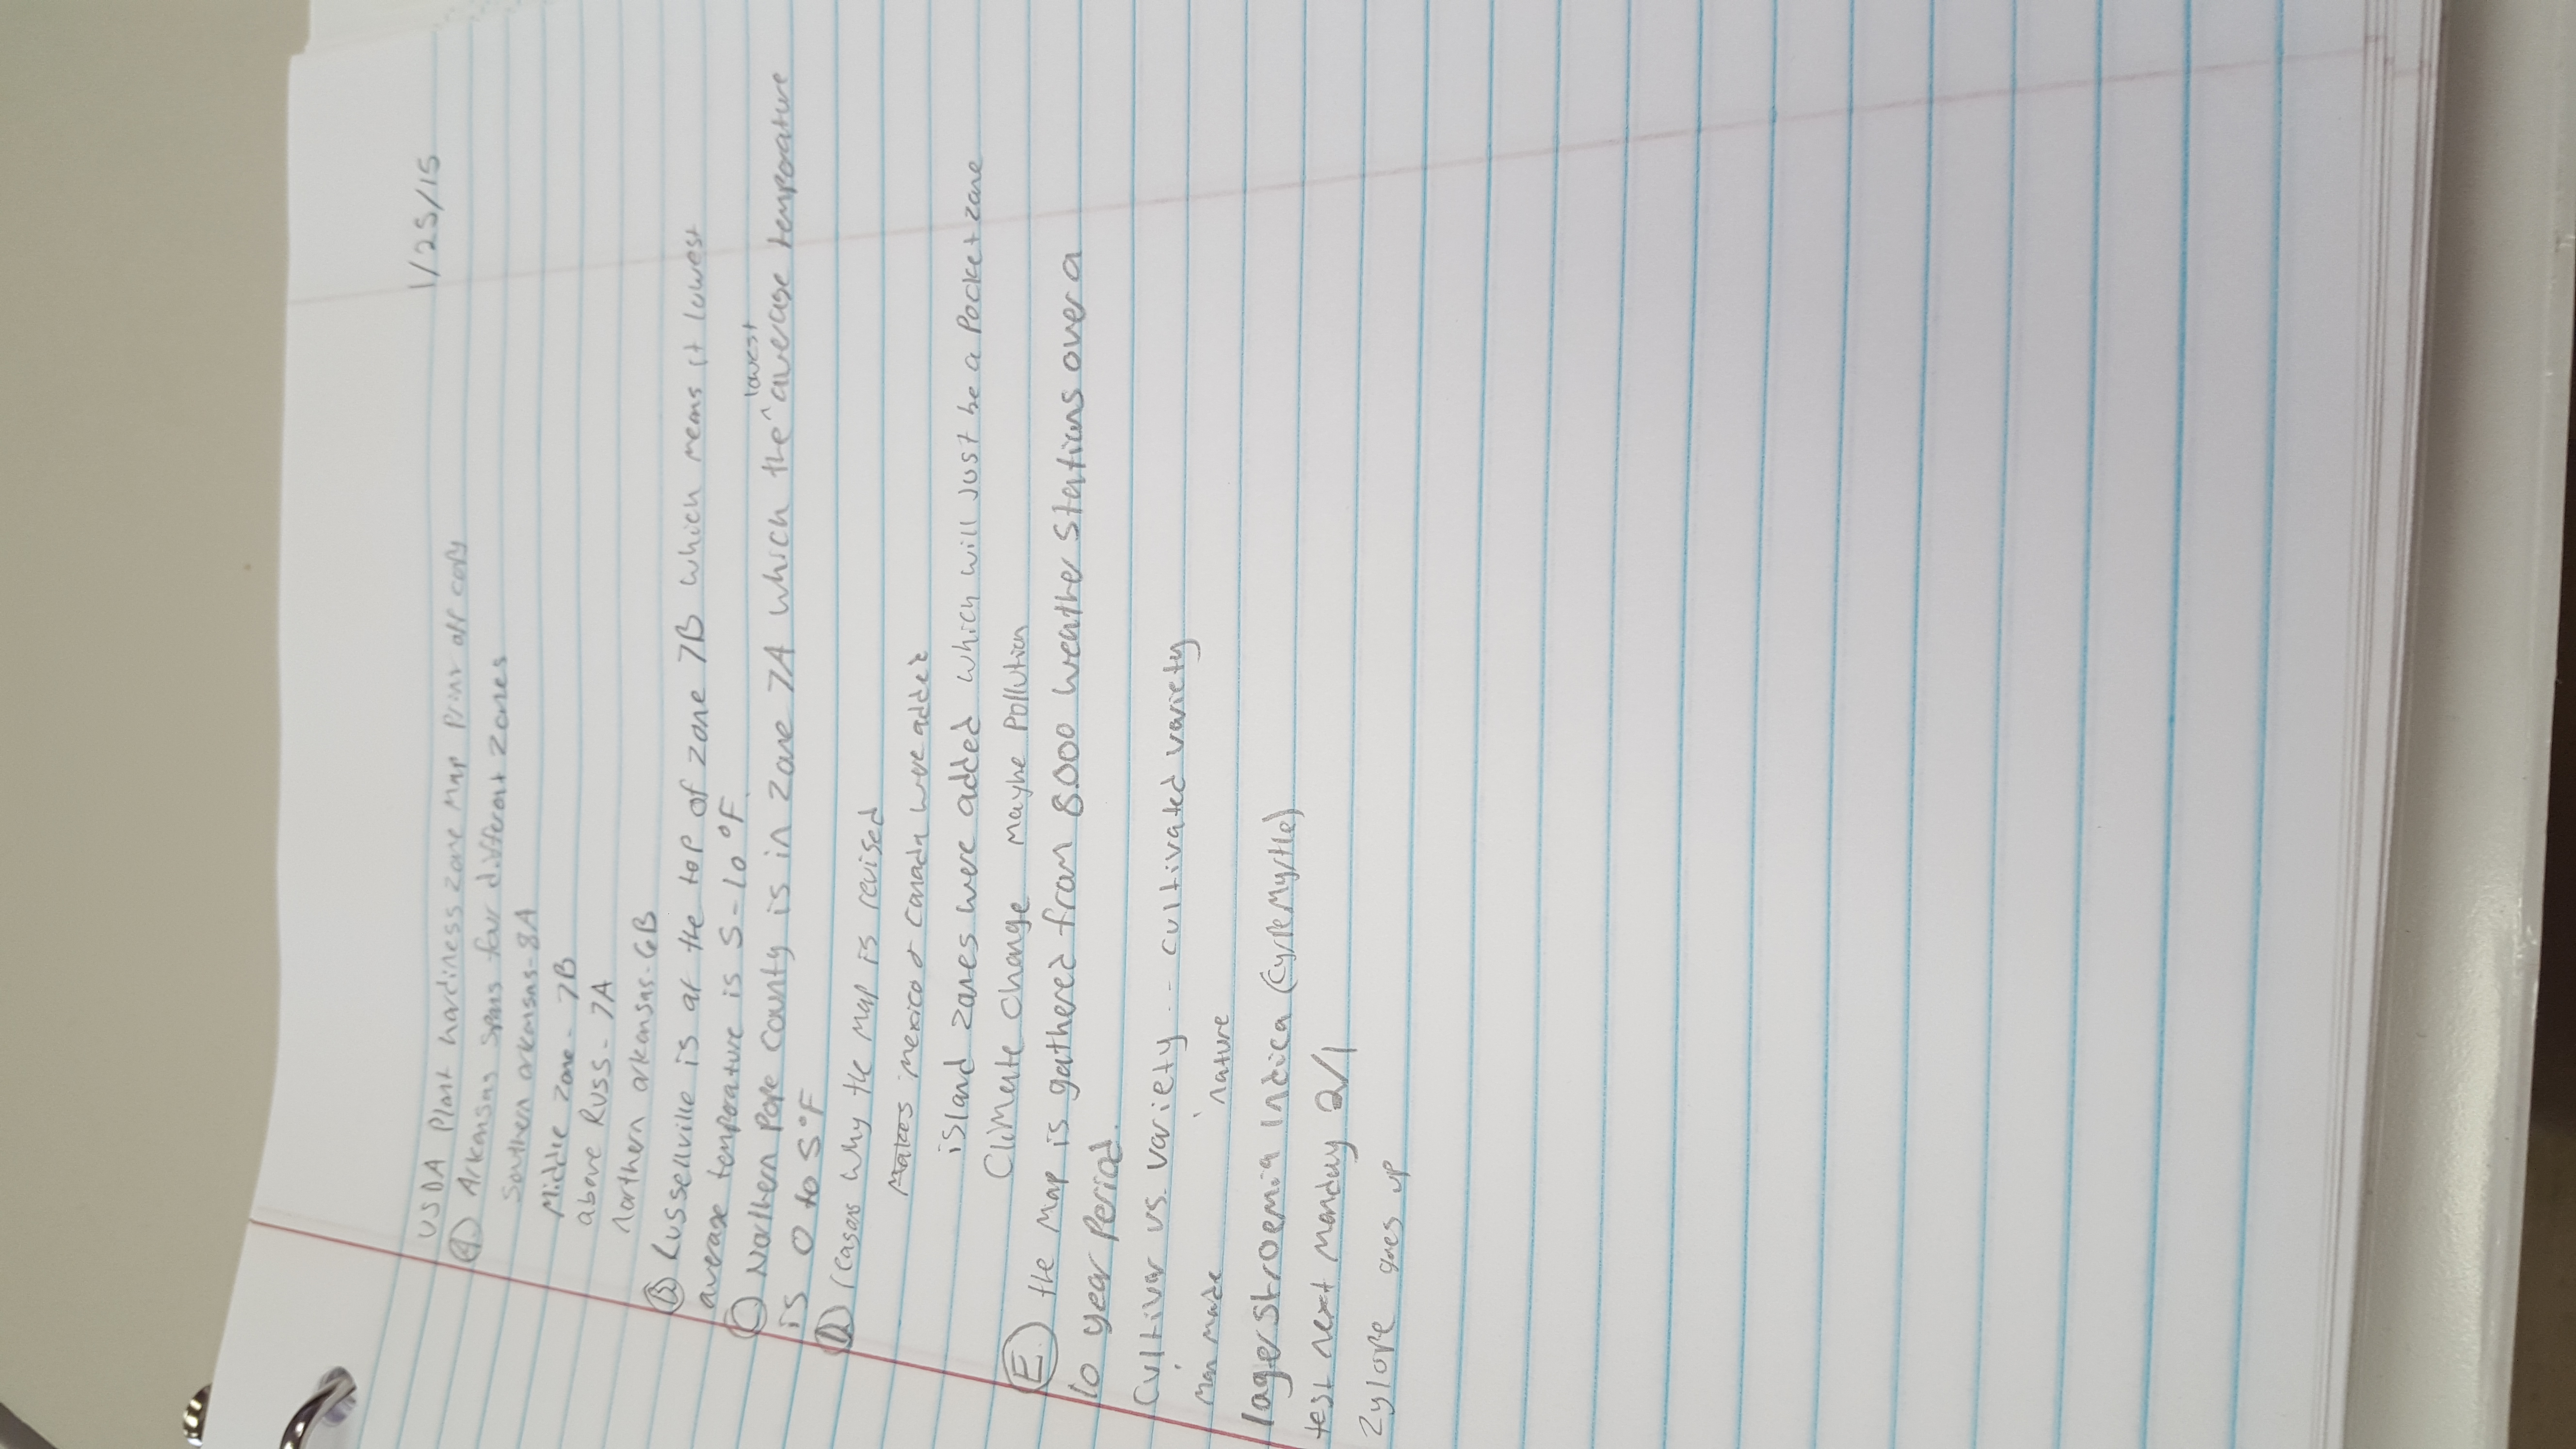 1/25/15
USDA Plant hardiness zone Map Print off copy
A. Arkansas spans four different zones
Southern arkansas-8A
Middle zone - 7B
above Russ - 7A
northern arkansas-6B
B. Russellville is at the top of zone 7B which means it lowest
average temporature is 5-10°F
lowest
C. Northern Pope County is in zone 7A which the ^ average temporature
is 0 to 5°F
D. reasons why the map is revised
Makes mexico & canada were added
island zones were added which will just be a pocket zone
Climate Change maybe Pollution
E. the map is gathered from 8,000 weather stations over a
10 year Period.
Cultivar vs. variety -- cultivated variety
Man made nature
lagerstroemia indica (CypeMyrtle)
test next monday 2/1
Zylope goes up